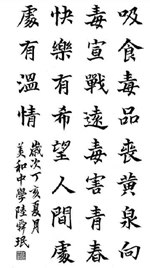 吸食毒品喪黃泉向
毒宣戰遠毒害青春
快樂有希望人間處
處有溫情
歲次丁亥夏月
美和中學陸舜珉